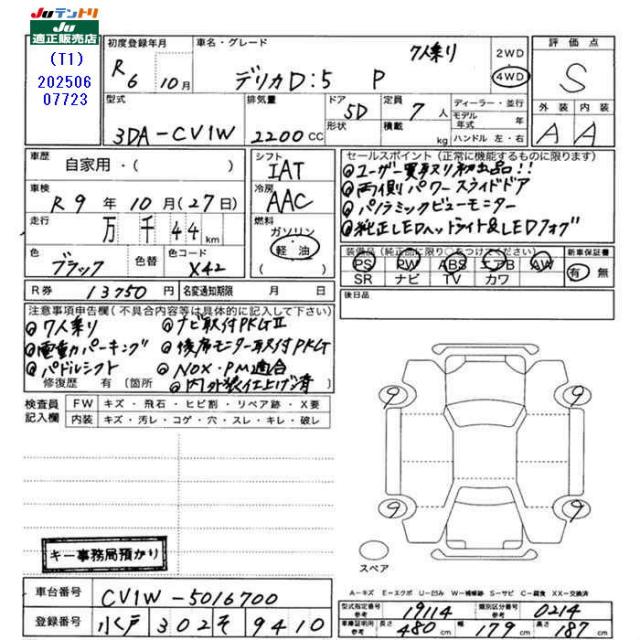 JUテントリ
JU
適正販売店
(T1)
202506
07723
初度登録年月
R6 10月
車名・グレード
7人乗り
デリカD:5 P
2WD
4WD
評価点
S
外装 内装
A A
型式
3DA-CV1W
排気量
2200CC
ドア
5D
形状
定員
7人
積載
kg
ディーラー・並行
モデル
年式 年
ハンドル 左・右
車歴
自家用・( )
車検
R9年10月(27日)
走行
万 千 44km
色
ブラック
色替
色コード
X42
シフト
IAT
冷房
AAC
燃料
ガソリン
軽油
セールスポイント(正常に機能するものに限ります)
◎ユーザー買取り初出品!!
◎両側パワースライドドア
◎パノラミックビューモニター
◎純正LEDヘッドライト&LEDフォグ
装備品(純正品に限り○をつけてください)
PS PW ABS エアB AW
SR ナビ TV カワ
新車保証書
有 無
R券 13750円
名変通知期限 月 日
後日品
注意事項申告欄(不具合内容等は具体的に記入して下さい)
◎7人乗り ◎ナビ取付PKGⅡ
◎電動パーキング ◎後席モニター取付PKG
◎パドルシフト ◎NOX・PM適合
修復歴 有(箇所 ◎内外装仕上げ済)
検査員
記入欄
FW キズ・飛石・ヒビ割・リペア跡・X要
内装 キズ・汚レ・コゲ・穴・スレ・キレ・破レ
9 9
9 9
スペア
キー事務局預かり
A-キズ E-エクボ U-凹み W-補修跡 S-サビ C-腐食 XX-交換済
車台番号 CV1W-5016700
登録番号 水戸 302 そ 9410
型式指定番号
参考
19114
類別区分番号
参考
0214
車庫証明用
参考
長さ 480cm 幅 179cm 高さ 187cm